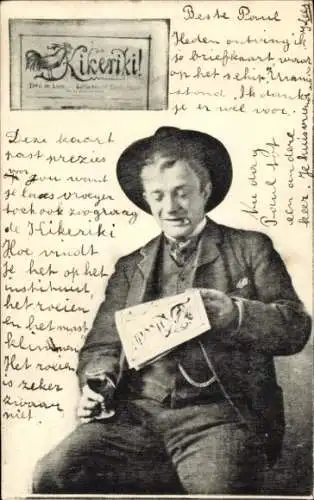 Kikeriki!
Beste Paul
Heden ontving ik
je briefkaart waar
op het schip
stond. Ik dank
je er wel voor.
Deze kaart
past precies
voor jou want
je laas vroeger
toch ook zoo graag
de Kikeriki
Hoe vindt
je het op het
instituut,
het roeien
en het mast
klimmen.
Het roeien
is zeker
zwaar
niet.
Nu dag
Paul tot
een andere
keer. Je